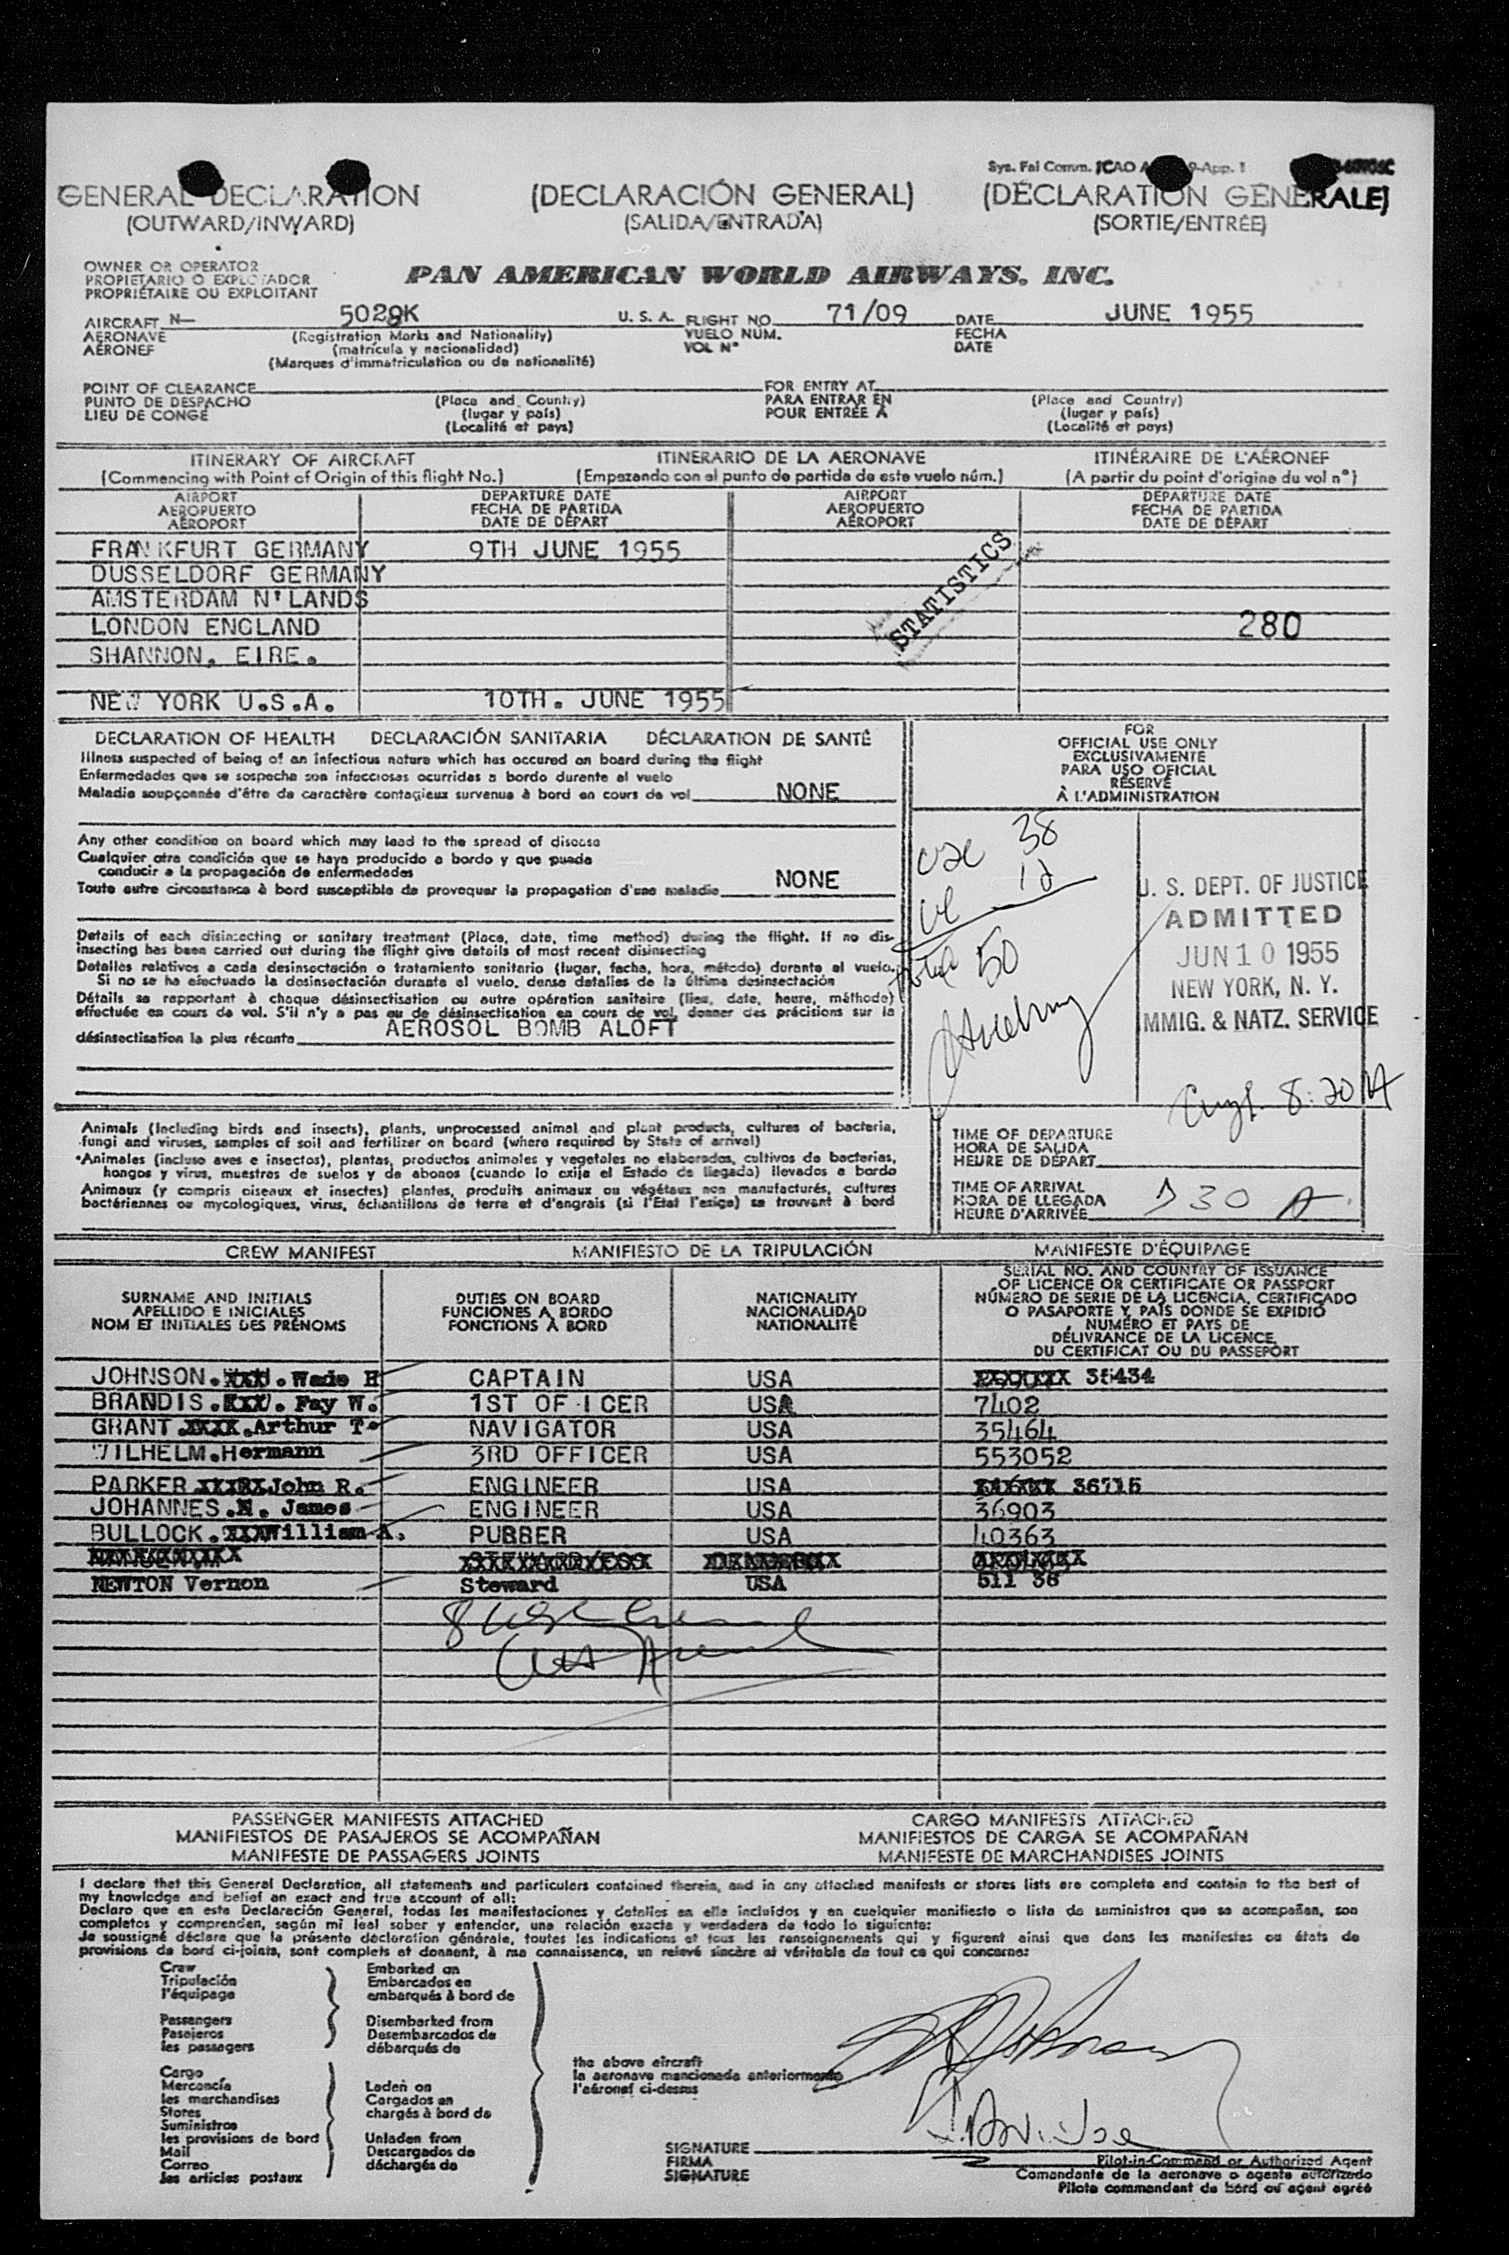 Sys. Fal Comm. ICAO 9-App. 1
GENERAL DECLARATION
(OUTWARD/INWARD)
(DECLARACIÓN GENERAL)
(SALIDA/ENTRADA)
(DÉCLARATION GÉNÉRALE)
(SORTIE/ENTRÉE)
OWNER OR OPERATOR
PROPIETARIO O EXPLOTADOR
PROPRIÉTAIRE OU EXPLOITANT
PAN AMERICAN WORLD AIRWAYS, INC.
AIRCRAFT N— 5028K U. S. A. FLIGHT NO. 71/09 DATE JUNE 1955
AERONAVE (Registration Marks and Nationality) VUELO NÚM. FECHA
AÉRONEF (matrícula y nacionalidad) VOL N° DATE
(Marques d'immatriculation ou de nationalité)
POINT OF CLEARANCE FOR ENTRY AT
PUNTO DE DESPACHO (Place and Country) PARA ENTRAR EN (Place and Country)
LIEU DE CONGÉ (lugar y país) POUR ENTRÉE À (lugar y país)
(Localité et pays) (Localité et pays)
ITINERARY OF AIRCRAFT ITINERARIO DE LA AERONAVE ITINÉRAIRE DE L'AÉRONEF
(Commencing with Point of Origin of this flight No.) (Empezando con el punto de partida de este vuelo núm.) (A partir du point d'origine du vol n°)
AIRPORT DEPARTURE DATE AIRPORT DEPARTURE DATE
AEROPUERTO FECHA DE PARTIDA AEROPUERTO FECHA DE PARTIDA
AÉROPORT DATE DE DÉPART AÉROPORT DATE DE DÉPART
FRANKFURT GERMANY 9TH JUNE 1955
DUSSELDORF GERMANY
AMSTERDAM N'LANDS
STATISTICS
LONDON ENGLAND 280
SHANNON. EIRE.
NEW YORK U.S.A. 10TH. JUNE 1955
DECLARATION OF HEALTH DECLARACIÓN SANITARIA DÉCLARATION DE SANTÉ
Illness suspected of being of an infectious nature which has occured on board during the flight
Enfermedades que se sospecha son infecciosas ocurridas a bordo durante el vuelo
Maladie soupçonnée d'être de caractère contagieux survenue à bord en cours de vol NONE
Any other condition on board which may lead to the spread of disease
Cualquier otra condición que se haya producido a bordo y que pueda
conducir a la propagación de enfermedades
Toute autre circonstance à bord susceptible de provoquer la propagation d'une maladie NONE
Details of each disinsecting or sanitary treatment (Place, date, time method) during the flight. If no dis-
insecting has been carried out during the flight give details of most recent disinsecting
Detalles relativos a cada desinsectación o tratamiento sanitario (lugar, fecha, hora, método) durante el vuelo.
Si no se ha efectuado la desinsectación durante el vuelo, dense detalles de la última desinsectación
Détails se rapportant à chaque désinsectisation ou autre opération sanitaire (lieu, date, heure, méthode)
effectuée en cours de vol. S'il n'y a pas eu de désinsectisation en cours de vol, donner des précisions sur la
désinsectisation la plus récente AEROSOL BOMB ALOFT
FOR
OFFICIAL USE ONLY
EXCLUSIVAMENTE
PARA USO OFICIAL
RÉSERVÉ
À L'ADMINISTRATION
usc 38
12
total 50
U. S. DEPT. OF JUSTICE
ADMITTED
JUN 10 1955
NEW YORK, N. Y.
IMMIG. & NATZ. SERVICE
8:20 A
Animals (Including birds and insects), plants, unprocessed animal and plant products, cultures of bacteria,
fungi and viruses, samples of soil and fertilizer on board (where required by State of arrival)
•Animales (incluso aves e insectos), plantas, productos animales y vegetales no elaborados, cultivos de bacterias,
hongos y virus, muestras de suelos y de abonos (cuando lo exija el Estado de llegada) llevados a bordo
Animaux (y compris oiseaux et insectes) plantes, produits animaux ou végétaux non manufacturés, cultures
bactériennes ou mycologiques, virus, échantillons de terre et d'engrais (si l'Etat l'exige) se trouvant à bord
TIME OF DEPARTURE
HORA DE SALIDA
HEURE DE DÉPART
TIME OF ARRIVAL
HORA DE LLEGADA
HEURE D'ARRIVÉE 730 A
CREW MANIFEST MANIFIESTO DE LA TRIPULACIÓN MANIFESTE D'ÉQUIPAGE
SURNAME AND INITIALS
APELLIDO E INICIALES
NOM ET INITIALES DES PRÉNOMS
DUTIES ON BOARD
FUNCIONES A BORDO
FONCTIONS À BORD
NATIONALITY
NACIONALIDAD
NATIONALITÉ
SERIAL NO. AND COUNTRY OF ISSUANCE
OF LICENCE OR CERTIFICATE OR PASSPORT
NÚMERO DE SERIE DE LA LICENCIA, CERTIFICADO
O PASAPORTE Y PAÍS DONDE SE EXPIDIÓ
NUMÉRO ET PAYS DE
DÉLIVRANCE DE LA LICENCE
DU CERTIFICAT OU DU PASSEPORT
JOHNSON. Wade H CAPTAIN USA 35434
BRANDIS. Fay W. 1ST OFFICER USA 7402
GRANT .Arthur T. NAVIGATOR USA 35464
WILHELM.Hermann 3RD OFFICER USA 553052
PARKER John R. ENGINEER USA 36715
JOHANNES.N. James ENGINEER USA 36903
BULLOCK. William A. PURSER USA 40363
NEWTON Vernon Steward USA 511 36
8 usc
PASSENGER MANIFESTS ATTACHED CARGO MANIFESTS ATTACHED
MANIFIESTOS DE PASAJEROS SE ACOMPAÑAN MANIFIESTOS DE CARGA SE ACOMPAÑAN
MANIFESTE DE PASSAGERS JOINTS MANIFESTE DE MARCHANDISES JOINTS
I declare that this General Declaration, all statements and particulars contained therein, and in any attached manifests or stores lists are complete and contain to the best of
my knowledge and belief an exact and true account of all:
Declaro que en esta Declaración General, todas las manifestaciones y detalles en ella incluídos y en cualquier manifiesto o lista de suministros que se acompañan, son
completos y comprenden, según mi leal saber y entender, una relación exacta y verdadera de todo lo siguiente:
Je soussigné déclare que la présente déclaration générale, toutes les indications et tous les renseignements qui y figurent ainsi que dans les manifestes ou états de
provisions de bord ci-joints, sont complets et donnent, à ma connaissance, un relevé sincère et véritable de tout ce qui concerne:
Crew
Tripulación
l'équipage
Passengers
Pasajeros
les passagers
Cargo
Mercancía
les marchandises
Stores
Suministros
les provisions de bord
Mail
Correo
les articles postaux
Embarked on
Embarcados en
embarqués à bord de
Disembarked from
Desembarcados de
débarqués de
Laden on
Cargados en
chargés à bord de
Unladen from
Descargados de
déchargés de
the above aircraft
la aeronave mencionada anteriormente
l'aéronef ci-dessus
SIGNATURE
FIRMA
SIGNATURE
Pilot-in-Command or Authorized Agent
Comandante de la aeronave o agente autorizado
Pilote commandant de bord ou agent agréé